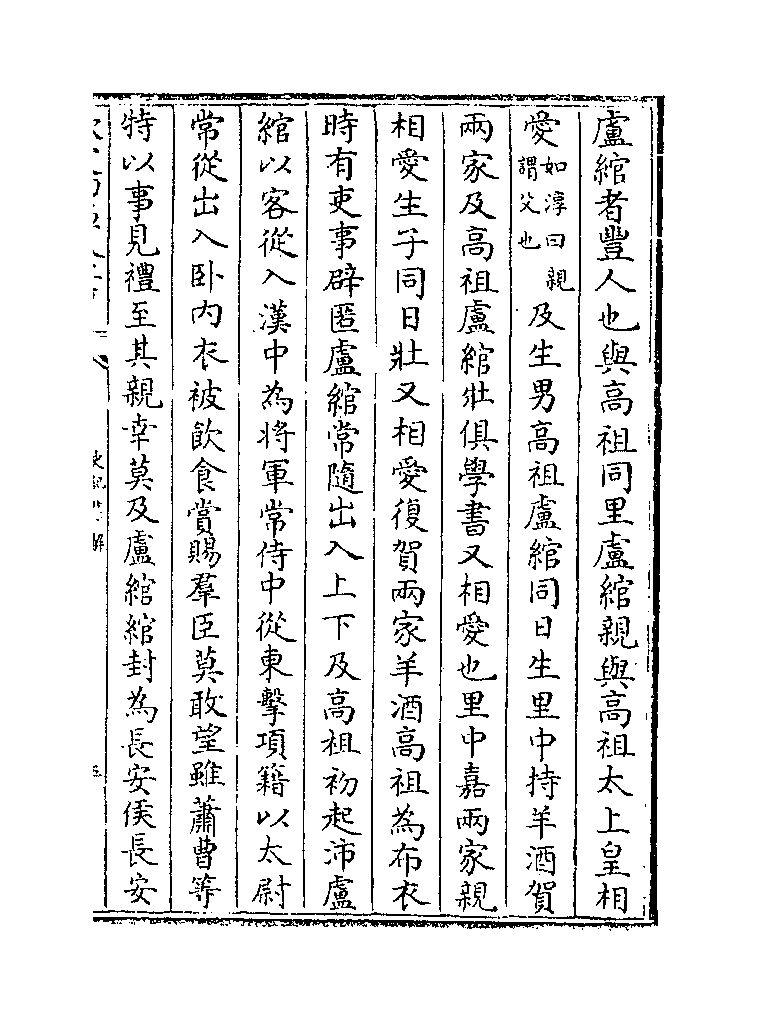 盧綰者豐人也與高祖同里盧綰親與高祖太上皇相
愛如淳曰親謂父也及生男高祖盧綰同日生里中持羊酒賀
兩家及高祖盧綰壯俱學書又相愛也里中嘉兩家親
相愛生子同日壯又相愛復賀兩家羊酒高祖為布衣
時有吏事辟匿盧綰常隨出入上下及高祖初起沛盧
綰以客從入漢中為將軍常侍中從東擊項籍以太尉
常從出入卧内衣被飲食賞賜羣臣莫敢望雖蕭曹等
特以事見禮至其親幸莫及盧綰綰封為長安侯長安
史記集解